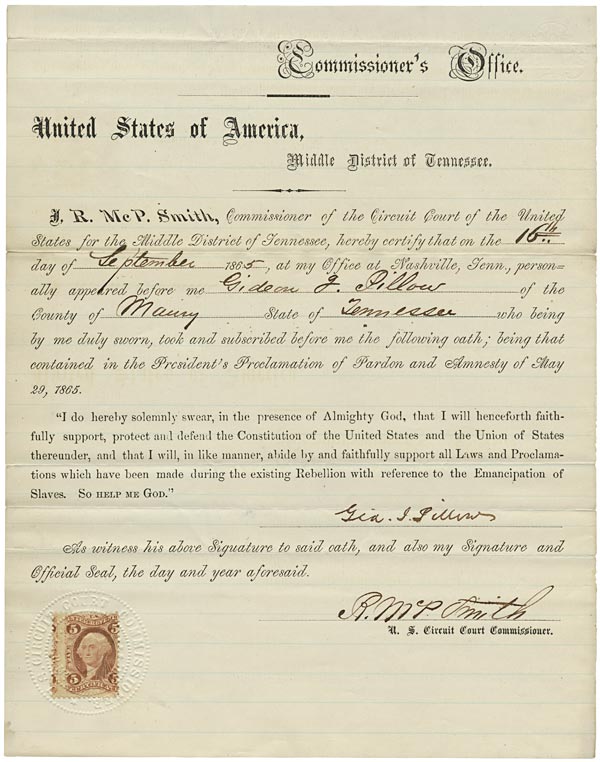 Commissioner's Office.
United States of America,
Middle District of Tennessee.
I, R. McP. Smith, Commissioner of the Circuit Court of the United
States for the Middle District of Tennessee, hereby certify that on the 16th
day of September 1865, at my Office at Nashville, Tenn., person=
ally appeared before me Gideon J. Pillow of the
County of Maury State of Tennessee who being
by me duly sworn, took and subscribed before me the following oath; being that
contained in the President's Proclamation of Pardon and Amnesty of May
29, 1865.
"I do hereby solemnly swear, in the presence of Almighty God, that I will henceforth faith-
fully support, protect and defend the Constitution of the United States and the Union of States
thereunder, and that I will, in like manner, abide by and faithfully support all Laws and Proclama-
tions which have been made during the existing Rebellion with reference to the Emancipation of
Slaves. So help me God."
Gid. J. Pillow
As witness his above Signature to said oath, and also my Signature and
Official Seal, the day and year aforesaid.
R. McP. Smith
U. S. Circuit Court Commissioner.
5 5
5 5